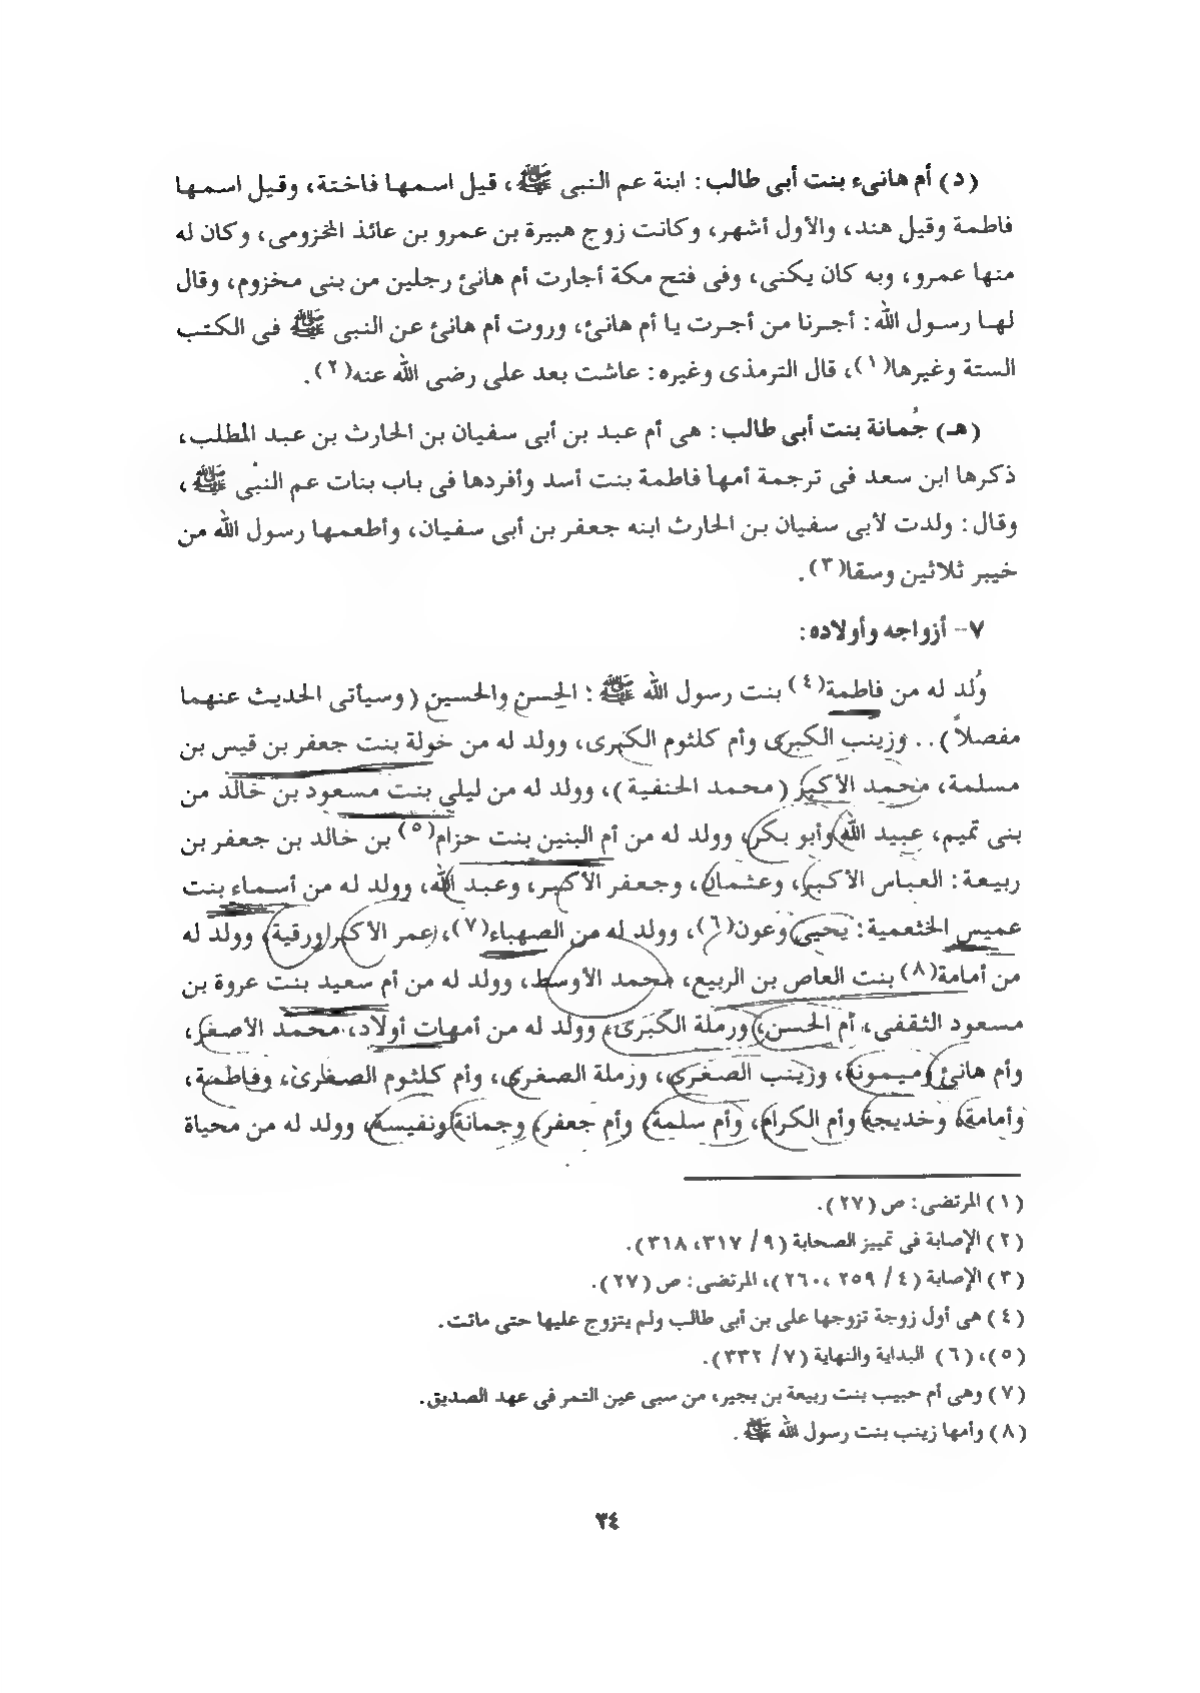 (د) أم هانىء بنت أبى طالب: ابنة عم النبى ﷺ، قيل اسمها فاختة، وقيل اسمها
فاطمة وقيل هند، والأول أشهر، وكانت زوج هبيرة بن عمرو بن عائذ المخزومى، وكان له
منها عمرو، وبه كان يكنى، وفى فتح مكة أجارت أم هانئ رجلين من بنى مخزوم، وقال
لها رسول الله: أجرنا من أجرت يا أم هانئ، وروت أم هانئ عن النبى ﷺ فى الكتب
الستة وغيرها(١)، قال الترمذى وغيره: عاشت بعد على رضى الله عنه(٢).
(هـ) جُمانة بنت أبى طالب: هى أم عبد بن أبى سفيان بن الحارث بن عبد المطلب،
ذكرها ابن سعد فى ترجمة أمها فاطمة بنت أسد وأفردها فى باب بنات عم النبى ﷺ،
وقال: ولدت لأبى سفيان بن الحارث ابنه جعفر بن أبى سفيان، وأطعمها رسول الله من
خيبر ثلاثين وسقا(٣).
٧- أزواجه وأولاده:
وُلد له من فاطمة(٤) بنت رسول الله ﷺ: الحسن والحسين (وسيأتى الحديث عنهما
مفصلاً).. وزينب الكبرى وأم كلثوم الكبرى، وولد له من خولة بنت جعفر بن قيس بن
مسلمة، محمد الأكبر (محمد الحنفية)، وولد له من ليلى بنت مسعود بن خالد من
بنى تميم، عبيد الله وأبو بكر، وولد له من أم البنين بنت حزام(٥) بن خالد بن جعفر بن
ربيعة: العباس الأكبر، وعثمان، وجعفر الأكبر، وعبد الله، وولد له من أسماء بنت
عميس الخثعمية: يحيى وعون(٦)، وولد له من الصهباء(٧)، عمر الأكبر ورقية، وولد له
من أمامة(٨) بنت العاص بن الربيع، محمد الأوسط، وولد له من أم سعيد بنت عروة بن
مسعود الثقفى، أم الحسن، ورملة الكبرى، وولد له من أمهات أولاد، محمد الأصغر،
وأم هانئ وميمونة، وزينب الصغرى، ورملة الصغرى، وأم كلثوم الصغرى، وفاطمة،
وأمامة، وخديجة وأم الكرام، وأم سلمة، وأم جعفر، وجمانة ونفيسة، وولد له من محياة
(١) المرتضى: ص (٢٧).
(٢) الإصابة فى تمييز الصحابة (٩/ ٣١٧، ٣١٨).
(٣) الإصابة (٤/ ٢٥٩، ٢٦٠)، المرتضى: ص (٢٧).
(٤) هى أول زوجة تزوجها على بن أبى طالب ولم يتزوج عليها حتى ماتت.
(٥)، (٦) البداية والنهاية (٧/ ٣٣٢).
(٧) وهى أم حبيب بنت ربيعة بن بجير، من سبى عين التمر فى عهد الصديق.
(٨) وأمها زينب بنت رسول الله ﷺ.
٣٤